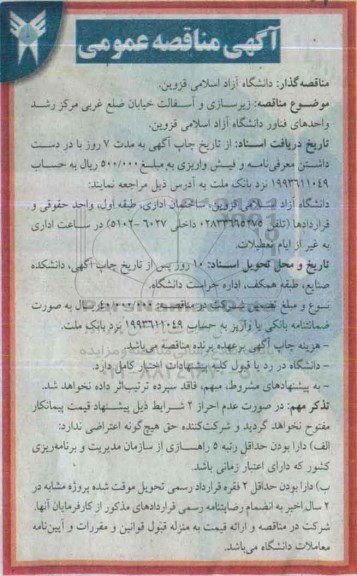 آگهی مناقصه عمومی
مناقصه‌گذار: دانشگاه آزاد اسلامی قزوین.
موضوع مناقصه: زیرسازی و آسفالت خیابان ضلع غربی مرکز رشد
واحدهای فناور دانشگاه آزاد اسلامی قزوین.
تاریخ دریافت اسناد: از تاریخ چاپ آگهی به مدت ۷ روز با در دست
داشتن معرفی‌نامه و فیش واریزی به مبلغ ۵۰۰/۰۰۰ ریال به حساب
۱۹۹۳۶۱۱۰۴۹ نزد بانک ملت به آدرس ذیل مراجعه نمایند:
دانشگاه آزاد اسلامی قزوین، ساختمان اداری، طبقه اول، واحد حقوقی و
قراردادها (تلفن ۰۲۸۳۳۶۶۵۲۷۵ داخلی ۶۰۲۷ -۵۱۰۲) در ساعات اداری
به غیر از ایام تعطیلات.
تاریخ و محل تحویل اسناد: ۱۰ روز پس از تاریخ چاپ آگهی، دانشکده
صنایع، طبقه همکف، اداره حراست دانشگاه.
نوع و مبلغ تضمین شرکت در مناقصه: ریال به صورت
ضمانتنامه بانکی یا واریز به حساب ۱۹۹۳۶۱۱۰۴۹ نزد بانک ملت.
- هزینه چاپ آگهی برعهده برنده مناقصه می‌باشد.
- دانشگاه در رد یا قبول کلیه پیشنهادات اختیار کامل دارد.
- به پیشنهادهای مشروط، مبهم، فاقد سپرده ترتیب‌اثر داده نخواهد شد.
تذکر مهم: در صورت عدم احراز ۲ شرایط ذیل پیشنهاد قیمت پیمانکار
مفتوح نخواهد گردید و شرکت‌کننده حق هیچ‌گونه اعتراضی ندارد:
الف) دارا بودن حداقل رتبه ۵ راهسازی از سازمان مدیریت و برنامه‌ریزی
کشور که دارای اعتبار زمانی باشد.
ب) دارا بودن حداقل ۲ فقره قرارداد رسمی تحویل موقت شده پروژه مشابه در
۲ سال اخیر به انضمام رضایتنامه رسمی قراردادهای مذکور از کارفرمایان آنها.
شرکت در مناقصه و ارائه قیمت به منزله قبول قوانین و مقررات و آیین‌نامه
معاملات دانشگاه می‌باشد.